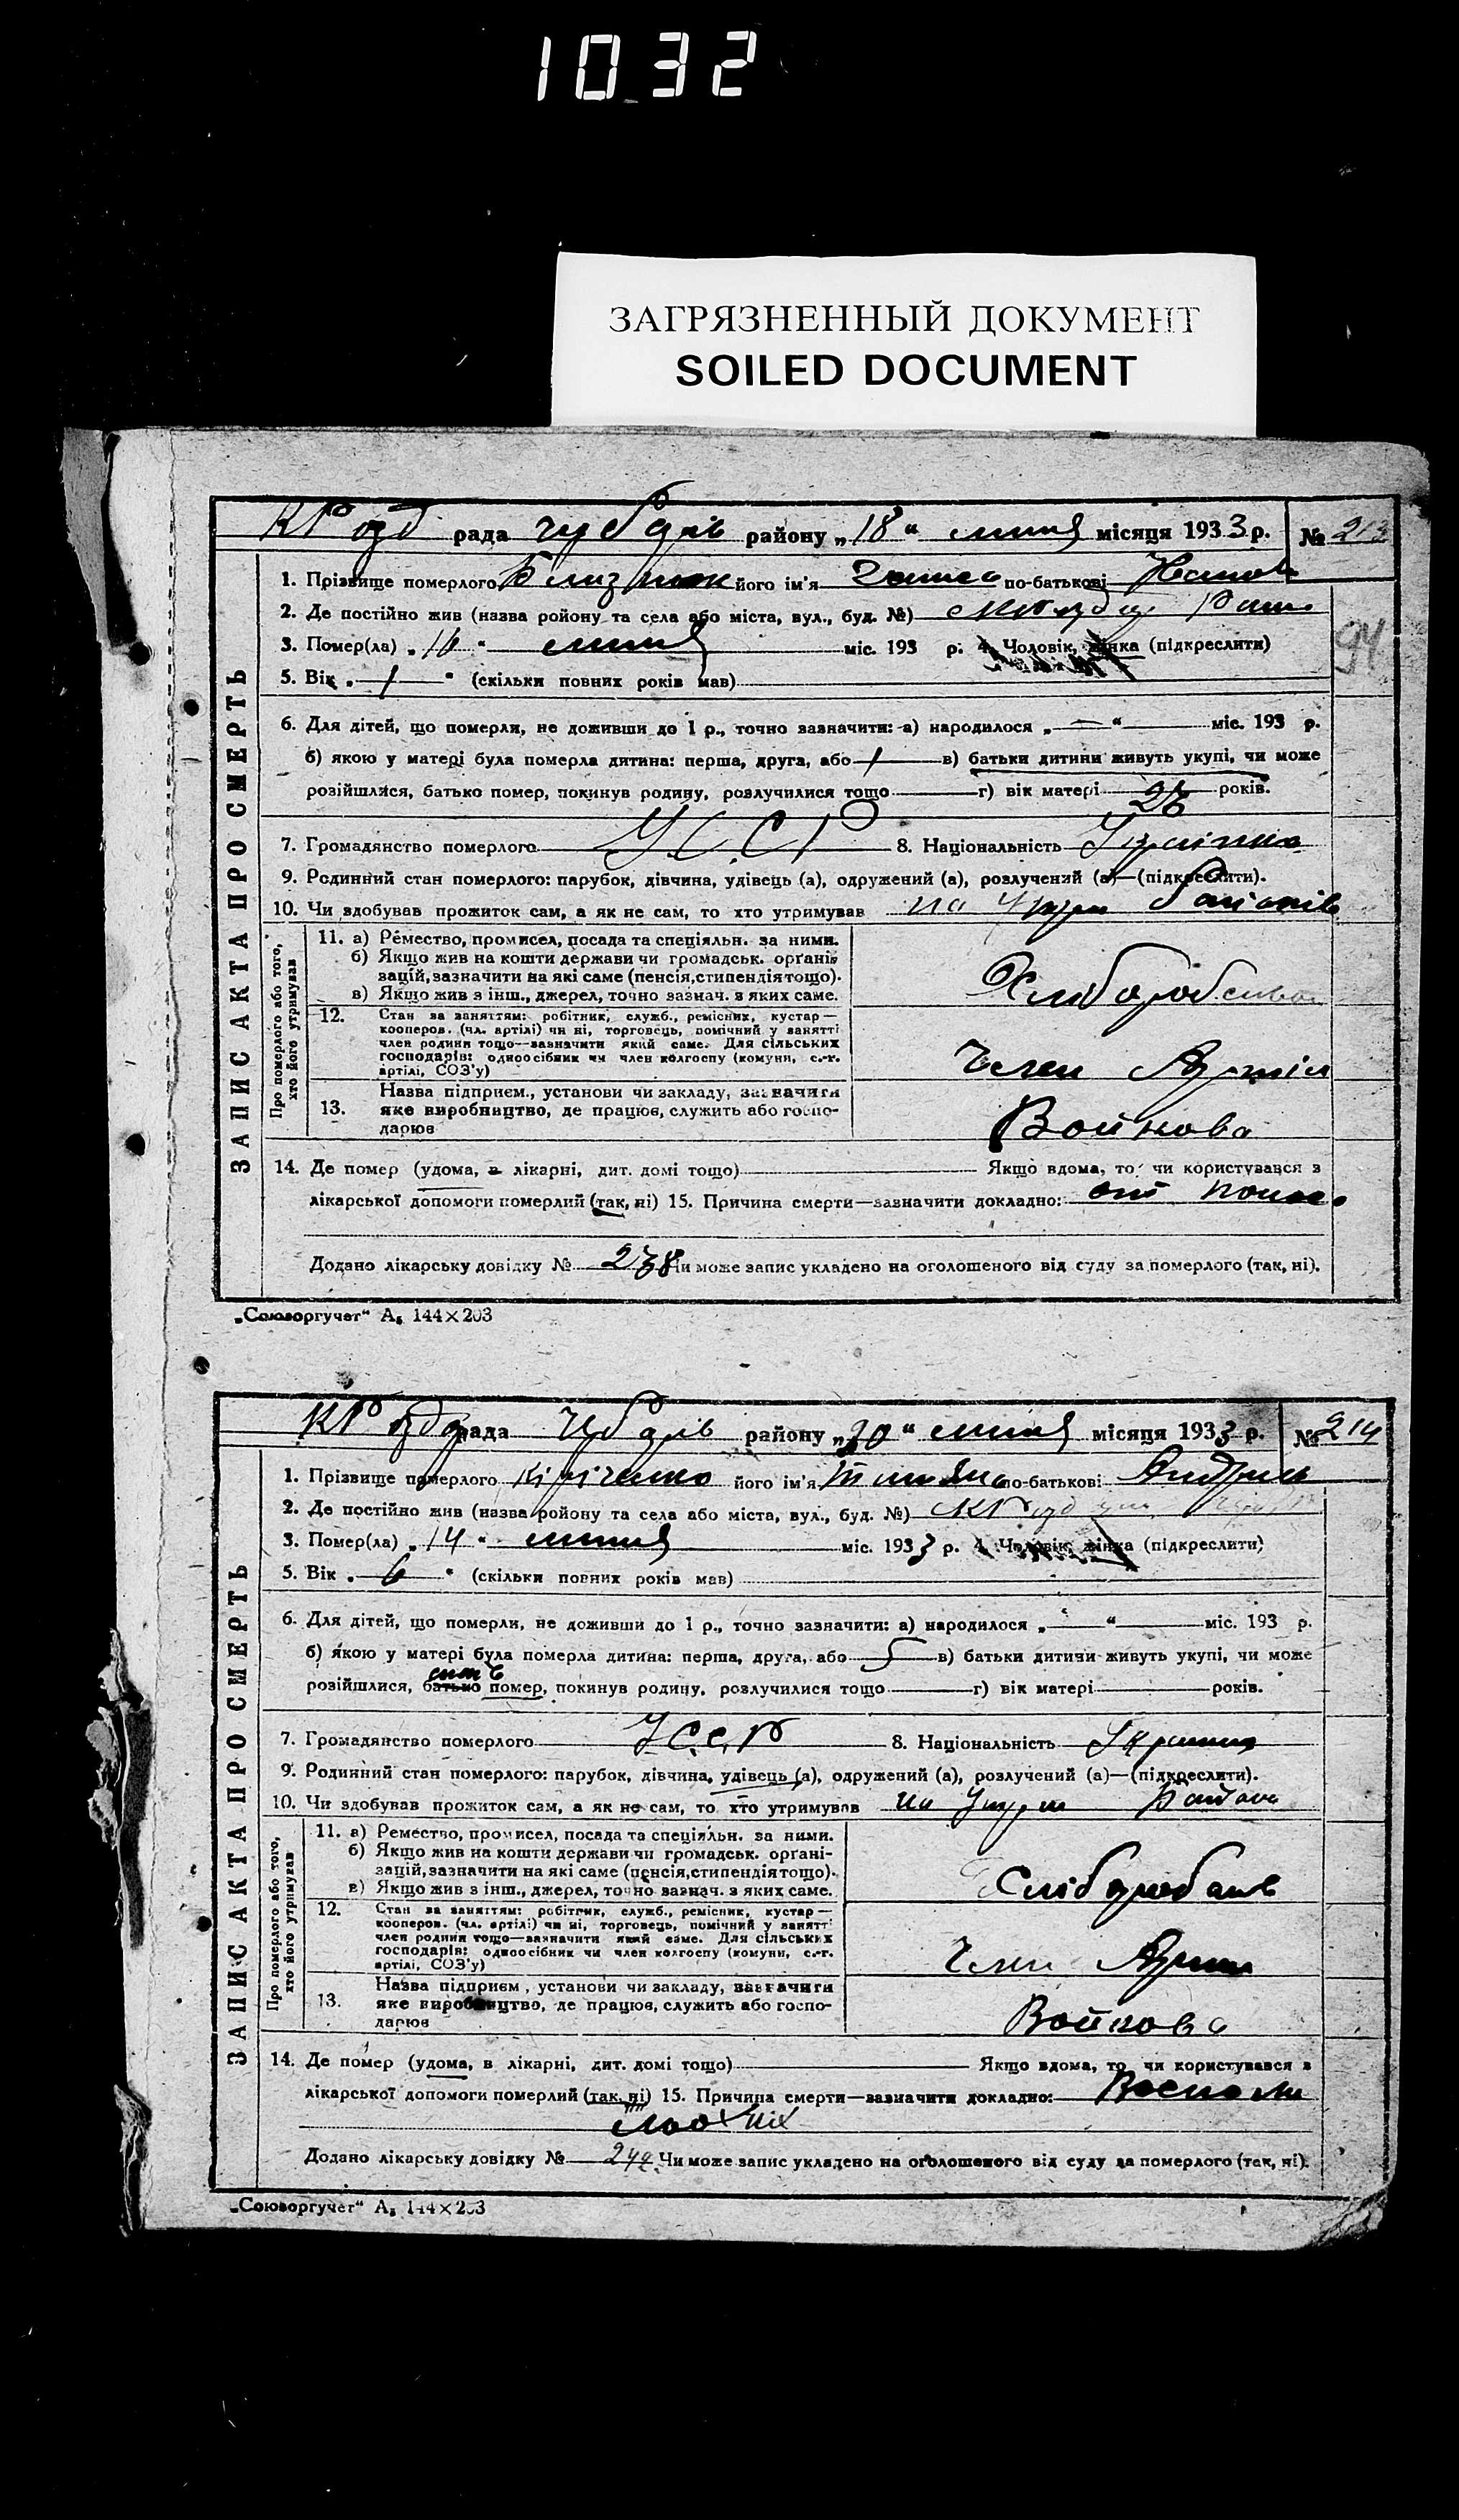 1032
ЗАГРЯЗНЕННЫЙ ДОКУМЕНТ
SOILED DOCUMENT
рада района „18“ липня місяця 1933 р. № 213
94
ЗАПИС АКТА ПРО СМЕРТЬ
1. Прізвище померлого його ім'я по-батькові
2. Де постійно жив (назва ройону та села або міста, вул., буд. №)
3. Помер(ла) „16“ липня міс. 193 р. 4. Чоловік, жінка (підкреслити)
5. Вік „1“ (скільки повних років мав)
6. Для дітей, що померли, не доживши до 1 р., точно зазначити: а) народилося „—“ міс. 193 р.
б) якою у матері була померла дитина: перша, друга, або 1 в) батьки дитини живуть укупі, чи може
розійшлися, батько помер, покинув родину, розлучилися тощо г) вік матері 26 років.
7. Громадянство померлого УССР 8. Національність
9. Родинний стан померлого: парубок, дівчина, удівець (а), одружений (а), розлучений (а)—(підкреслити).
10. Чи здобував прожиток сам, а як не сам, то хто утримував на
Про померлого або того, хто його утримував
11. а) Ремество, промисел, посада та спеціяльн. за ними.
б) Якщо жив на кошти держави чи громадськ. органі-
зацій, зазначити на які саме (пенсія, стипендія тощо).
в) Якщо жив з інш., джерел, точно зазнач. з яких саме.
12. Стан за заняттям: робітник, служб., ремісник, кустар—
кооперов. (чл. артілі) чи ні, торговець, помічний у занятті
член родини тощо—зазначити який саме. Для сільських
господарів: одноосібник чи член колгоспу (комуни, с.-г.
артілі, СОЗ'у)
Член
13. Назва підприєм., установи чи закладу, зазначити
яке виробництво, де працює, служить або госпо-
дарює
Войкова
14. Де помер (удома, в лікарні, дит. домі тощо) Якщо вдома, то чи користувався з
лікарської допомоги померлий (так, ні) 15. Причина смерти—зазначити докладно: от
Додано лікарську довідку № 238 Чи може запис укладено на оголошеного від суду за померлого (так, ні).
„Союзоргучет“ А₅ 144×203
рада району „20“ липня місяця 1933 р. № 214
ЗАПИС АКТА ПРО СМЕРТЬ
1. Прізвище померлого його ім'я по-батькові
2. Де постійно жив (назва ройону та села або міста, вул., буд. №)
3. Помер(ла) „14“ липня міс. 1933 р. 4. Чоловік, жінка (підкреслити)
5. Вік „6“ (скільки повних років мав)
6. Для дітей, що померли, не доживши до 1 р., точно зазначити: а) народилося „—“ міс. 193 р.
б) якою у матері була померла дитина: перша, друга, або 5 в) батьки дитини живуть укупі, чи може
розійшлися, батько помер, покинув родину, розлучилися тощо г) вік матері років.
7. Громадянство померлого УССР 8. Національність
9. Родинний стан померлого: парубок, дівчина, удівець (а), одружений (а), розлучений (а)—(підкреслити).
10. Чи здобував прожиток сам, а як не сам, то хто утримував на
Про померлого або того, хто його утримував
11. а) Ремество, промисел, посада та спеціяльн. за ними.
б) Якщо жив на кошти держави чи громадськ. органі-
зацій, зазначити на які саме (пенсія, стипендія тощо).
в) Якщо жив з інш., джерел, точно зазнач. з яких саме.
12. Стан за заняттям: робітник, служб., ремісник, кустар—
кооперов. (чл. артілі) чи ні, торговець, помічний у занятті
член родини тощо—зазначити який саме. Для сільських
господарів: одноосібник чи член колгоспу (комуни, с.-г.
артілі, СОЗ'у)
Член
13. Назва підприєм., установи чи закладу, зазначити
яке виробництво, де працює, служить або госпо-
дарює
Войкова
14. Де помер (удома, в лікарні, дит. домі тощо) Якщо вдома, то чи користувався з
лікарської допомоги померлий (так, ні) 15. Причина смерти—зазначити докладно:
Додано лікарську довідку № 244 Чи може запис укладено на оголошеного від суду за померлого (так, ні).
„Союзоргучет“ А₅ 144×203